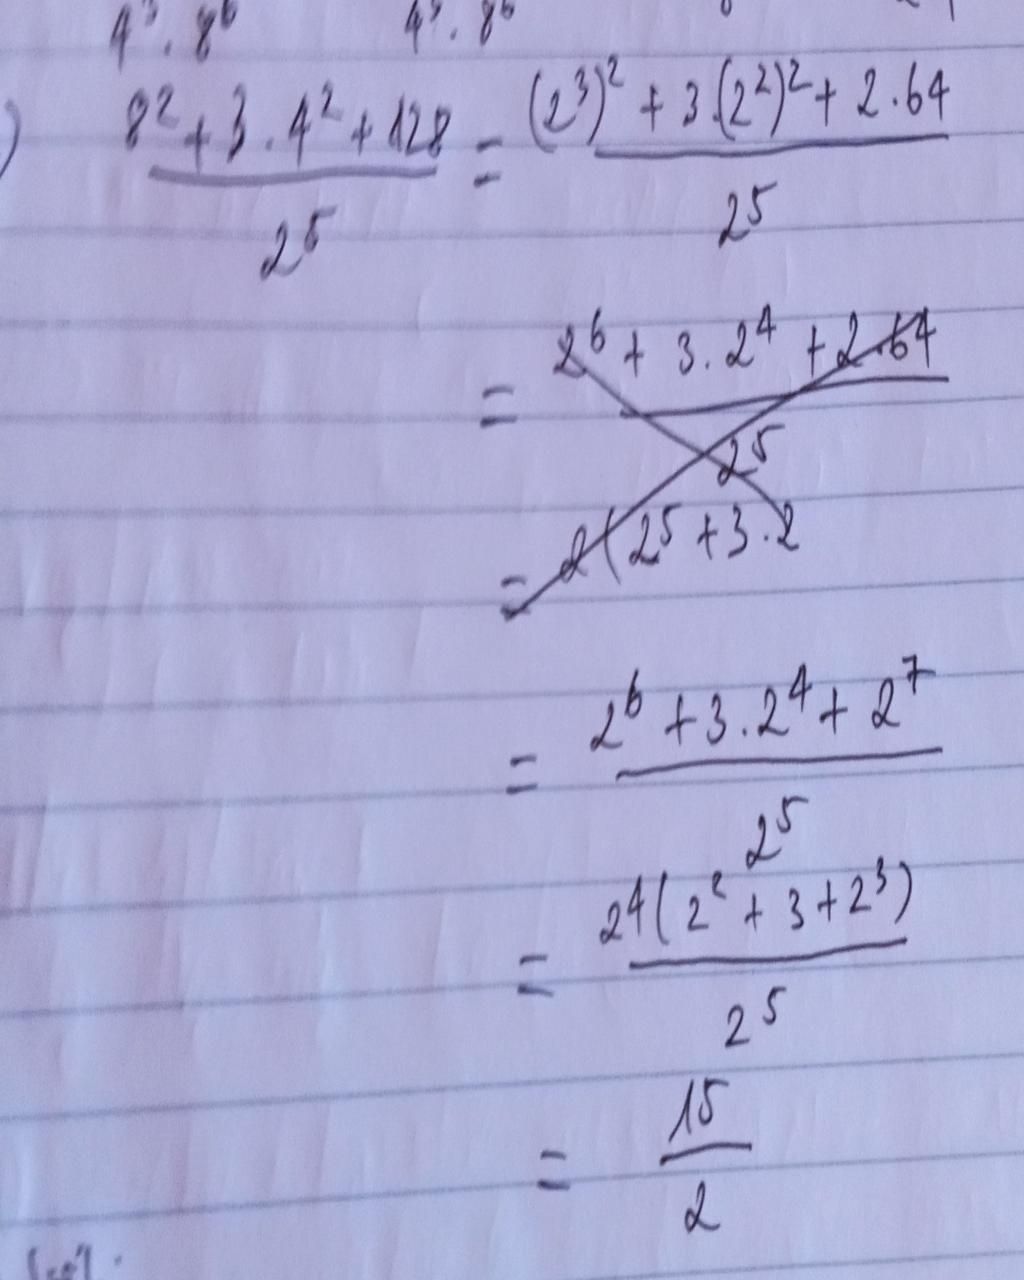 4³ . 8⁶ 4³ . 8⁶
) (8² + 3 . 4² + 128)/2⁵ = ((2³)² + 3.(2²)² + 2.64)/2⁵
= (2⁶ + 3.2⁴ + 2.64)/2⁵
= 2(2⁵ + 3.2
= (2⁶ + 3.2⁴ + 2⁷)/2⁵
= (2⁴(2² + 3 + 2³))/2⁵
= 15/2